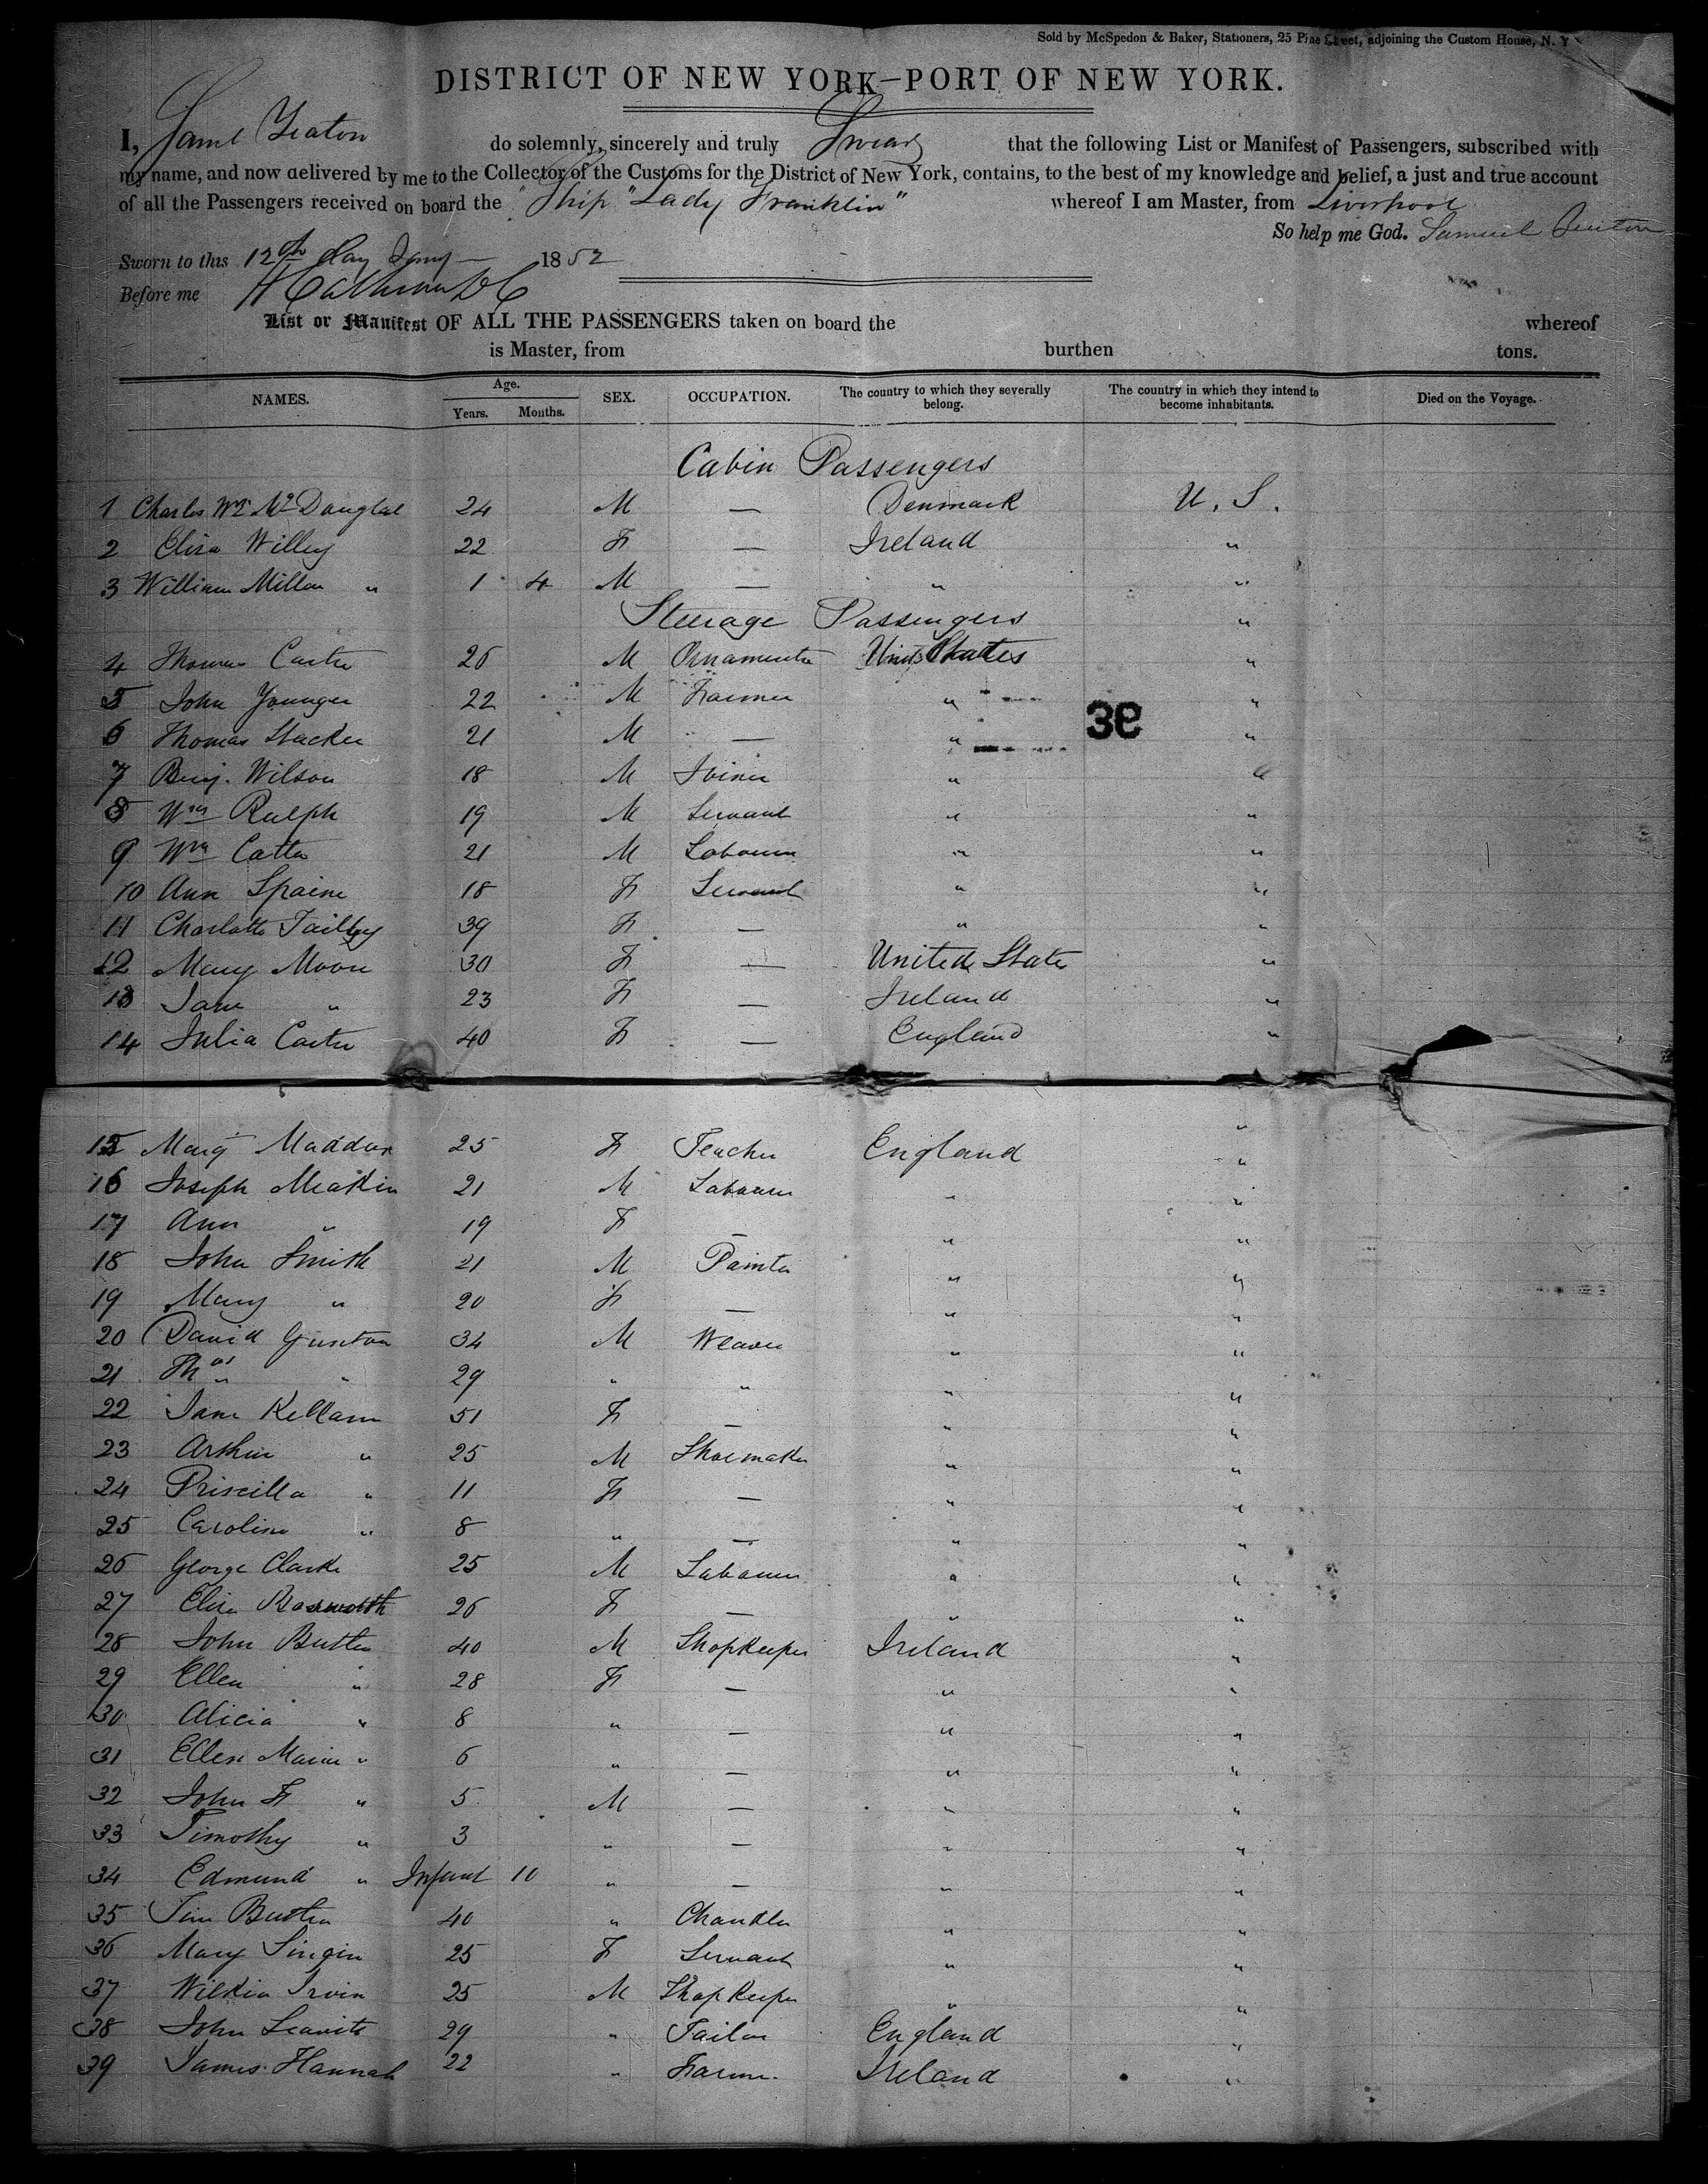 Sold by McSpedon & Baker, Stationers, 25 Pine Street, adjoining the Custom House, N. Y
DISTRICT OF NEW YORK—PORT OF NEW YORK.
I, Saml Yeaton do solemnly, sincerely and truly Swear that the following List or Manifest of Passengers, subscribed with
my name, and now delivered by me to the Collector of the Customs for the District of New York, contains, to the best of my knowledge and belief, a just and true account
of all the Passengers received on board the "Ship" Lady Franklin" whereof I am Master, from Liverpool
So help me God. Samuel
Sworn to this 12th day Jany 1852
Before me
List or Manifest OF ALL THE PASSENGERS taken on board the whereof
is Master, from burthen tons.
NAMES. Age. Years. Months. SEX. OCCUPATION. The country to which they severally belong. The country in which they intend to become inhabitants. Died on the Voyage.
Cabin Passengers
1 Charles Wm Mc Dougal 24 M — Denmark U. S.
2 Eliza Willey 22 F — Ireland "
3 William Millen " 1 4 M — " "
Steerage Passengers "
4 Thomas Carter 26 M Ornamenter Unit. States "
5 John Younger 22 M Farmer " "
39
6 Thomas Stacker 21 M — " "
7 Benj. Wilson 18 M Joiner " "
8 Wm Ralph 19 M Servant " "
9 Wm Catter 21 M Labourer " "
10 Ann Spaine 18 F Servant " "
11 Charlotte Tailby 39 F — " "
12 Mary Moore 30 F — United State "
13 Jane " 23 F — Ireland "
14 Julia Carter 40 F — England "
"
15 Marg Maddox 25 F Teacher England "
16 Joseph Meakin 21 M Labourer " "
17 Ann " 19 F — " "
18 John Smith 21 M Painter " "
19 Mary " 20 F — " "
20 David Gunton 34 M Weaver " "
21 Thos " 29 " " " "
22 Jane Kellam 51 F — " "
23 Arthur " 25 M Shoemaker " "
24 Priscilla " 11 F — " "
25 Caroline " 8 " — " "
26 George Clarke 25 M Labourer " "
27 Eliza Bosworth 26 F — " "
28 John Butler 40 M Shopkeeper Ireland "
29 Ellen " 28 F — " "
30 Alicia " 8 " — " "
31 Ellen Maria " 6 " — " "
32 John F " 5 M — " "
33 Timothy " 3 " — " "
34 Edmund " Infant 10 " — " "
35 Tim Butler 40 " Chandler " "
36 Mary Singin 25 F Servant " "
37 Wilkin Irvin 25 M Shopkeeper " "
38 John Leavitt 29 " Tailor England "
39 James Hannah 22 " Farmer Ireland "